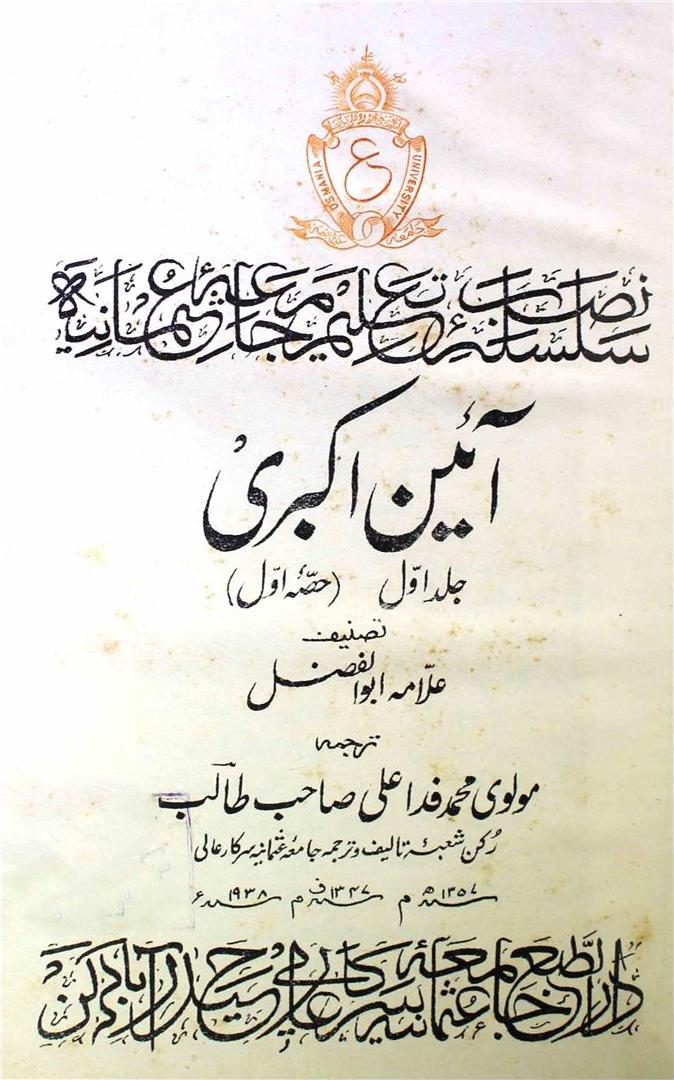 OSMANIA UNIVERSITY
ع
جامعہ عثمانیہ
سلسلۂ نصاب تعلیم جامعۂ عثمانیہ
آئین اکبری
جلد اوّل (حصّۂ اوّل)
تصنیف
علّامہ ابوالفضل
ترجمہ
مولوی محمد فدا علی صاحب طالب
رکن شعبۂ تالیف و ترجمہ جامعۂ عثمانیہ سرکار عالی
۱۳۵۷ھ م ۱۳۴۷ف م ۱۹۳۸ء
دار الطبع جامعۂ عثمانیہ سرکار عالی حیدرآباد دکن